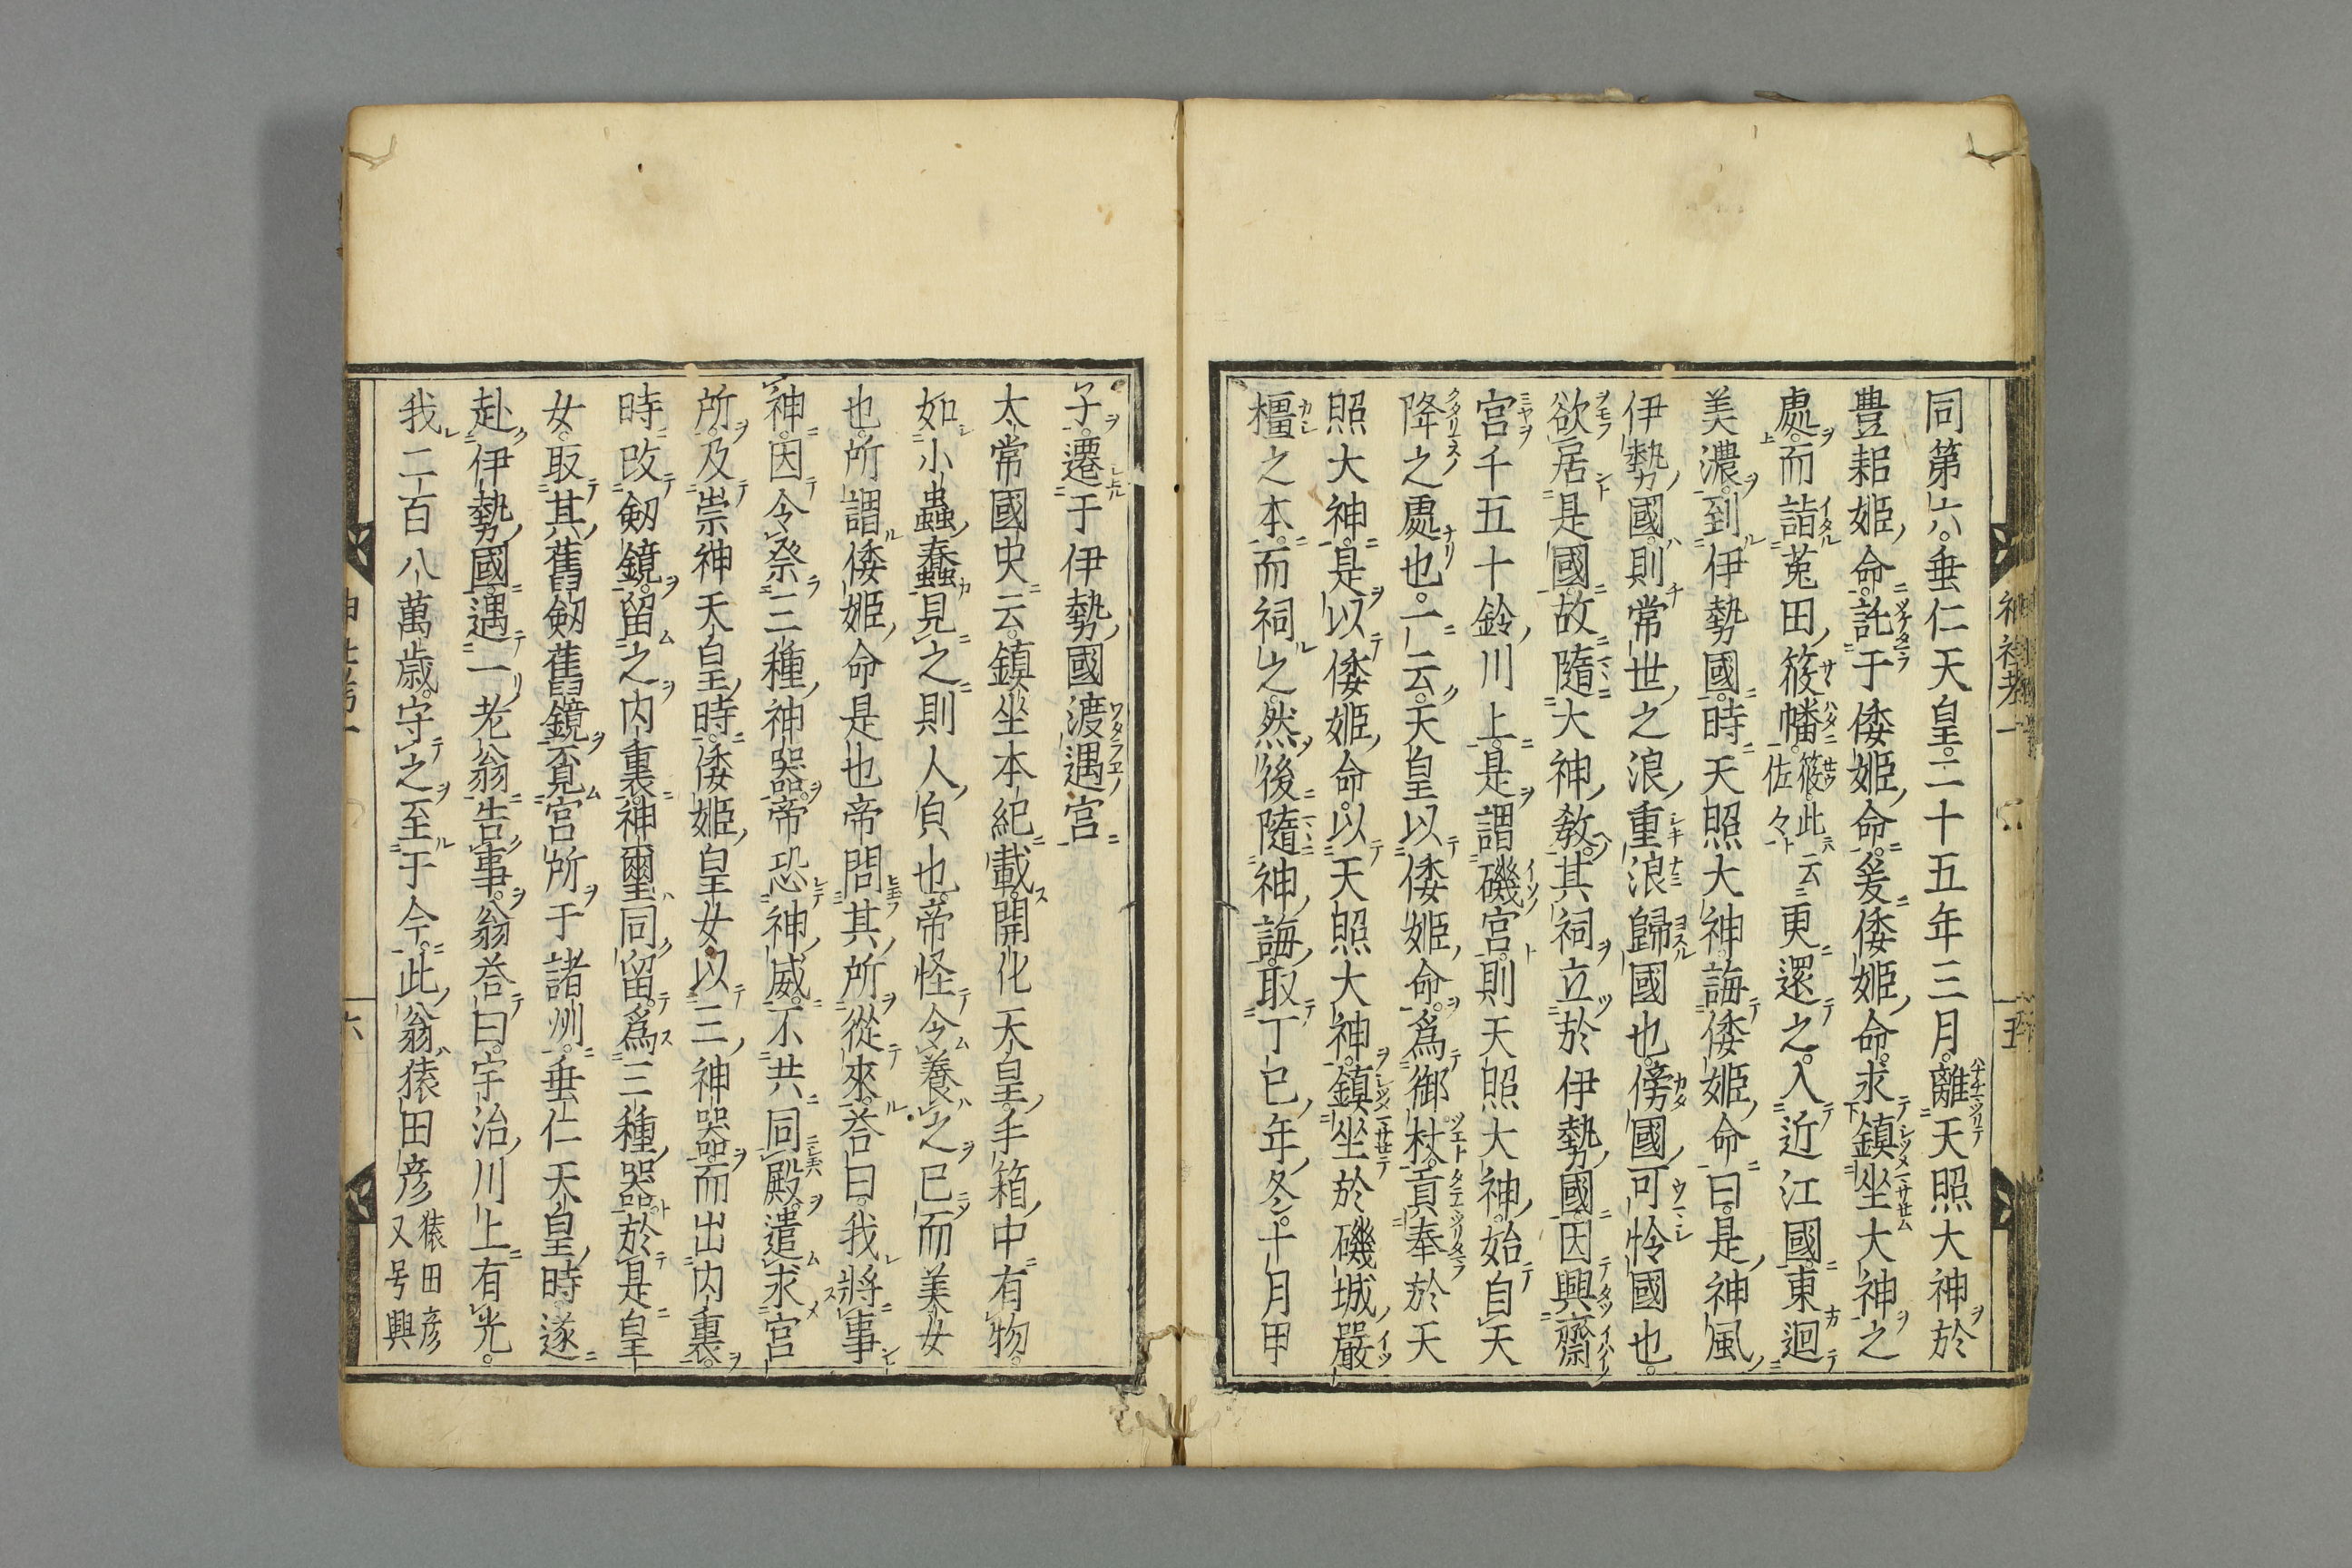 同第六垂仁天皇二十五年三月離天照大神於
豊耜姫命託于倭姫命爰倭姫命求鎮坐大神之
處而詣菟田筱幡筱此云佐々更還之入近江國東迴
美濃到伊勢國時天照大神誨倭姫命曰是神風
伊勢國則常世之浪重浪歸國也傍國可怜國也
欲居是國故隨大神敎其祠立於伊勢國因興齋
宮千五十鈴川上是謂磯宮則天照大神始自天
降之處也一云天皇以倭姫命爲御杖貢奉於天
照大神是以倭姫命以天照大神鎮坐於磯城嚴
橿之本而祠之然後隨神誨取丁巳年冬十月甲
子遷于伊勢國渡遇宮
太常國史云鎮坐本紀載開化天皇手箱中有物
如小蟲蠢見之則人負也帝怪令養之已而美女
也所謂倭姫命是也帝問其所從來荅曰我將事
神因令祭三種神器帝恐神威不共同殿遣求宮
所及崇神天皇時倭姫皇女以三神器而出内裏
時改劔鏡留之内裏神璽同留爲三種器於是皇
女取其舊劔舊鏡覓宮所于諸州垂仁天皇時遂
赴伊勢國遇一老翁告事翁荅曰宇治川上有光
我二百八萬歳守之至于今此翁猿田彦猿田彦又号興